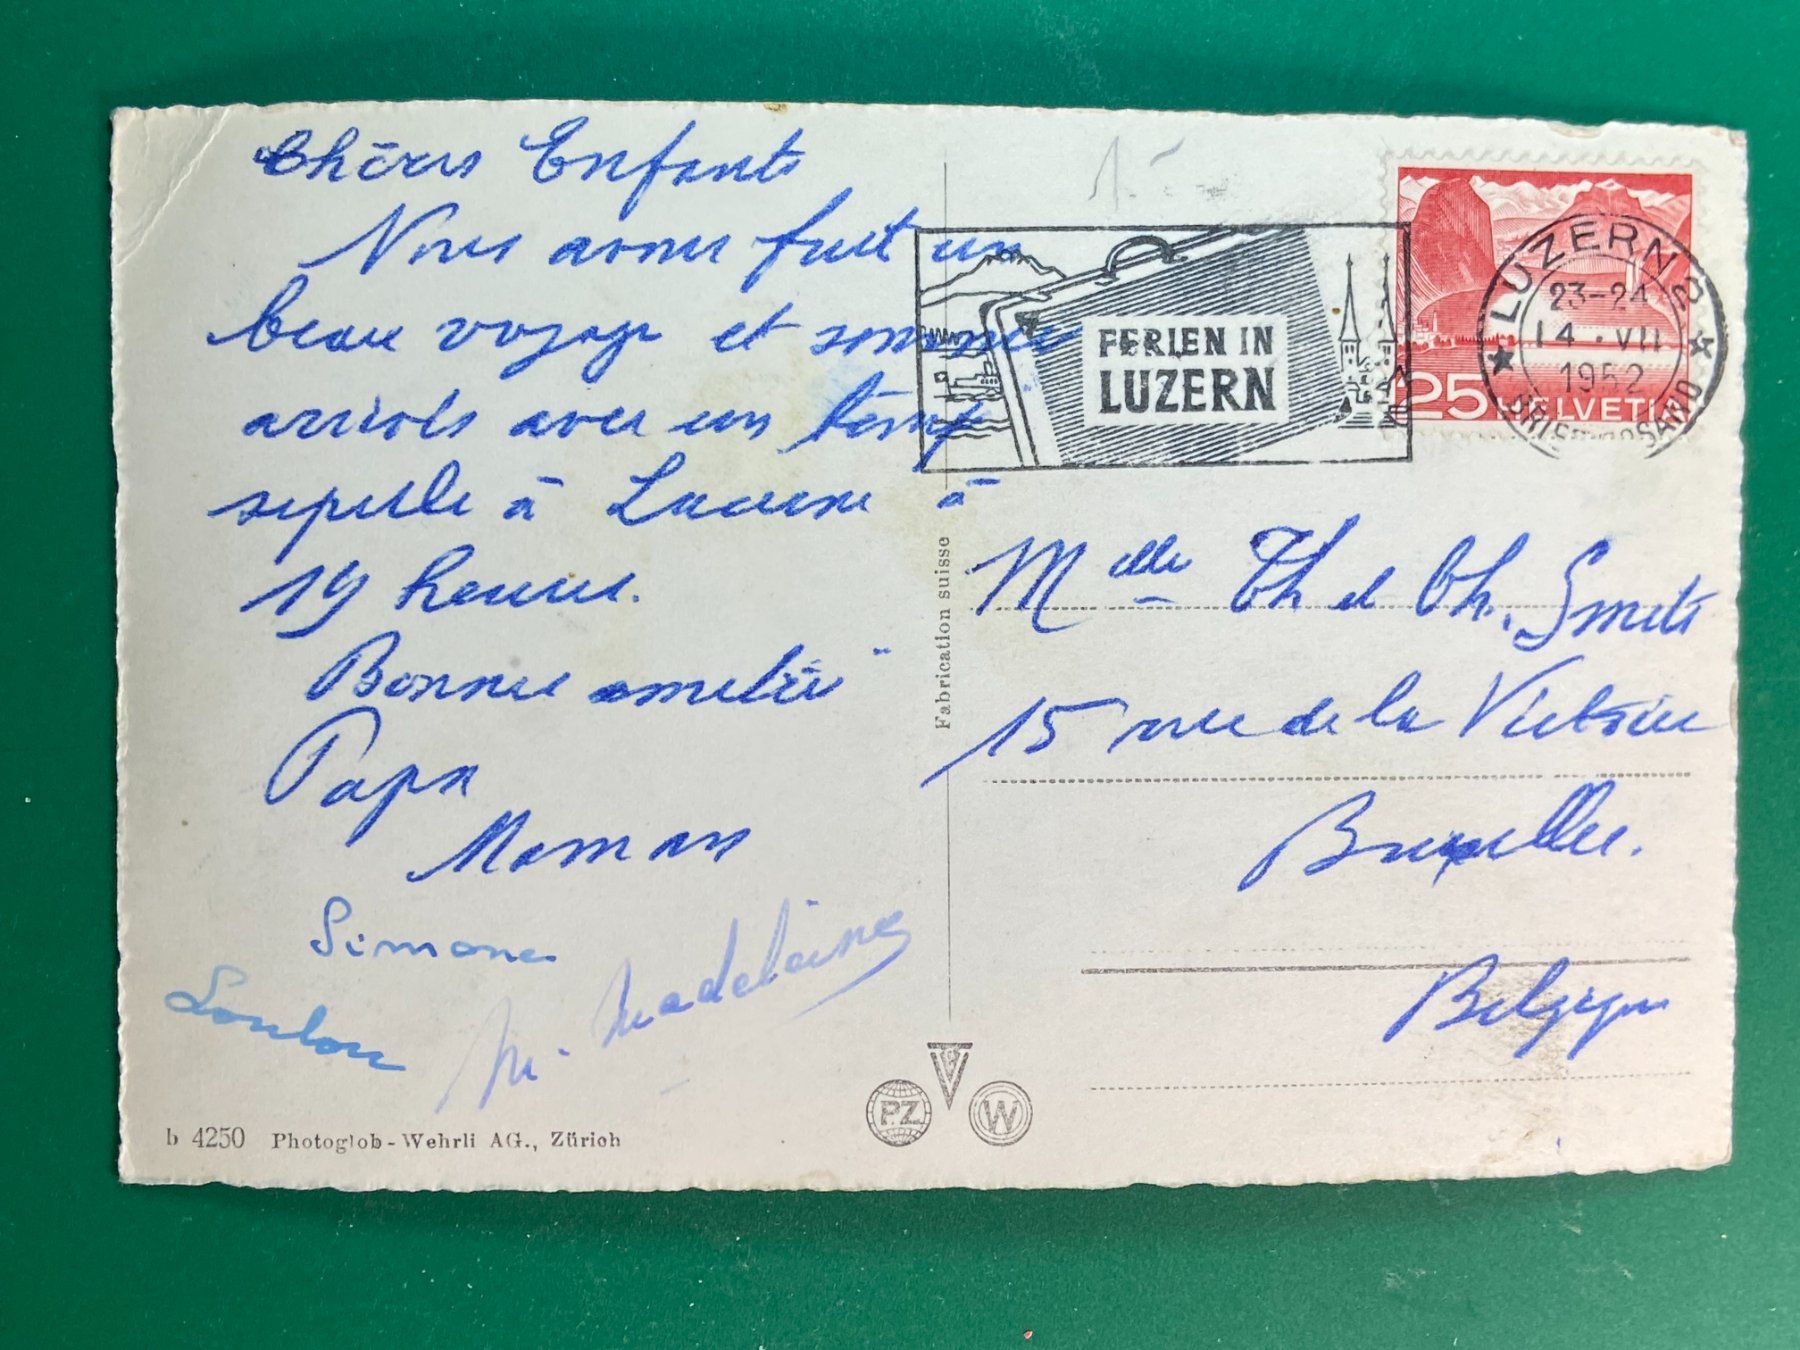 Chères Enfants
Nous avons fait un
beau voyage et sommes
arrivés avec un temps
superbe à Lucerne à
19 heures.
Bonnes amitiés
Papa
Maman
Simone
Loulou
M. Madeleine
b 4250 Photoglob-Wehrli AG., Zürich
Fabrication suisse
PZ
W
FERIEN IN
LUZERN
LUZERN 2
23-24
14.VII
1952
BRIEFVERSAND
25 HELVETIA
Melle Th et Ch. Smets
15 rue de la Victoire
Bruxelles.
Belgique